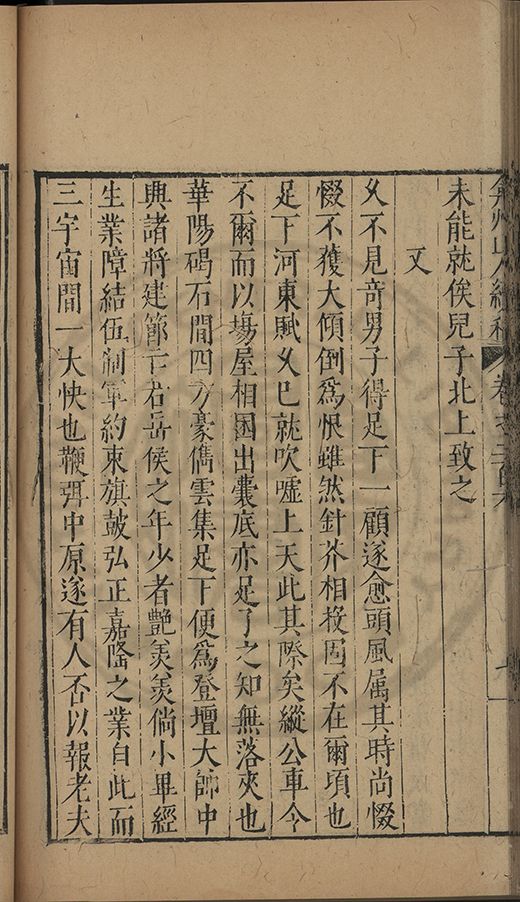 弇州山人續稿 卷之二百
未能就俟兒子北上致之
又
久不見奇男子得足下一顧遂愈頭風属其時尚惙
惙不獲大傾倒爲恨雖然針芥相投固不在爾頃也
足下河東賦久已就吹噓上天此其際矣縱公車今
不爾而以塲屋相困出囊底亦足了之知無落夾也
華陽碣石間四方豪儁雲集足下便爲登壇大帥中
興諸將建節下若岳侯之年少者艷羨羨倘小畢經
生業障結伍制軍約束旗皷弘正嘉隆之業自此而
三宇宙間一大快也鞭弭中原遂有人否以報老夫